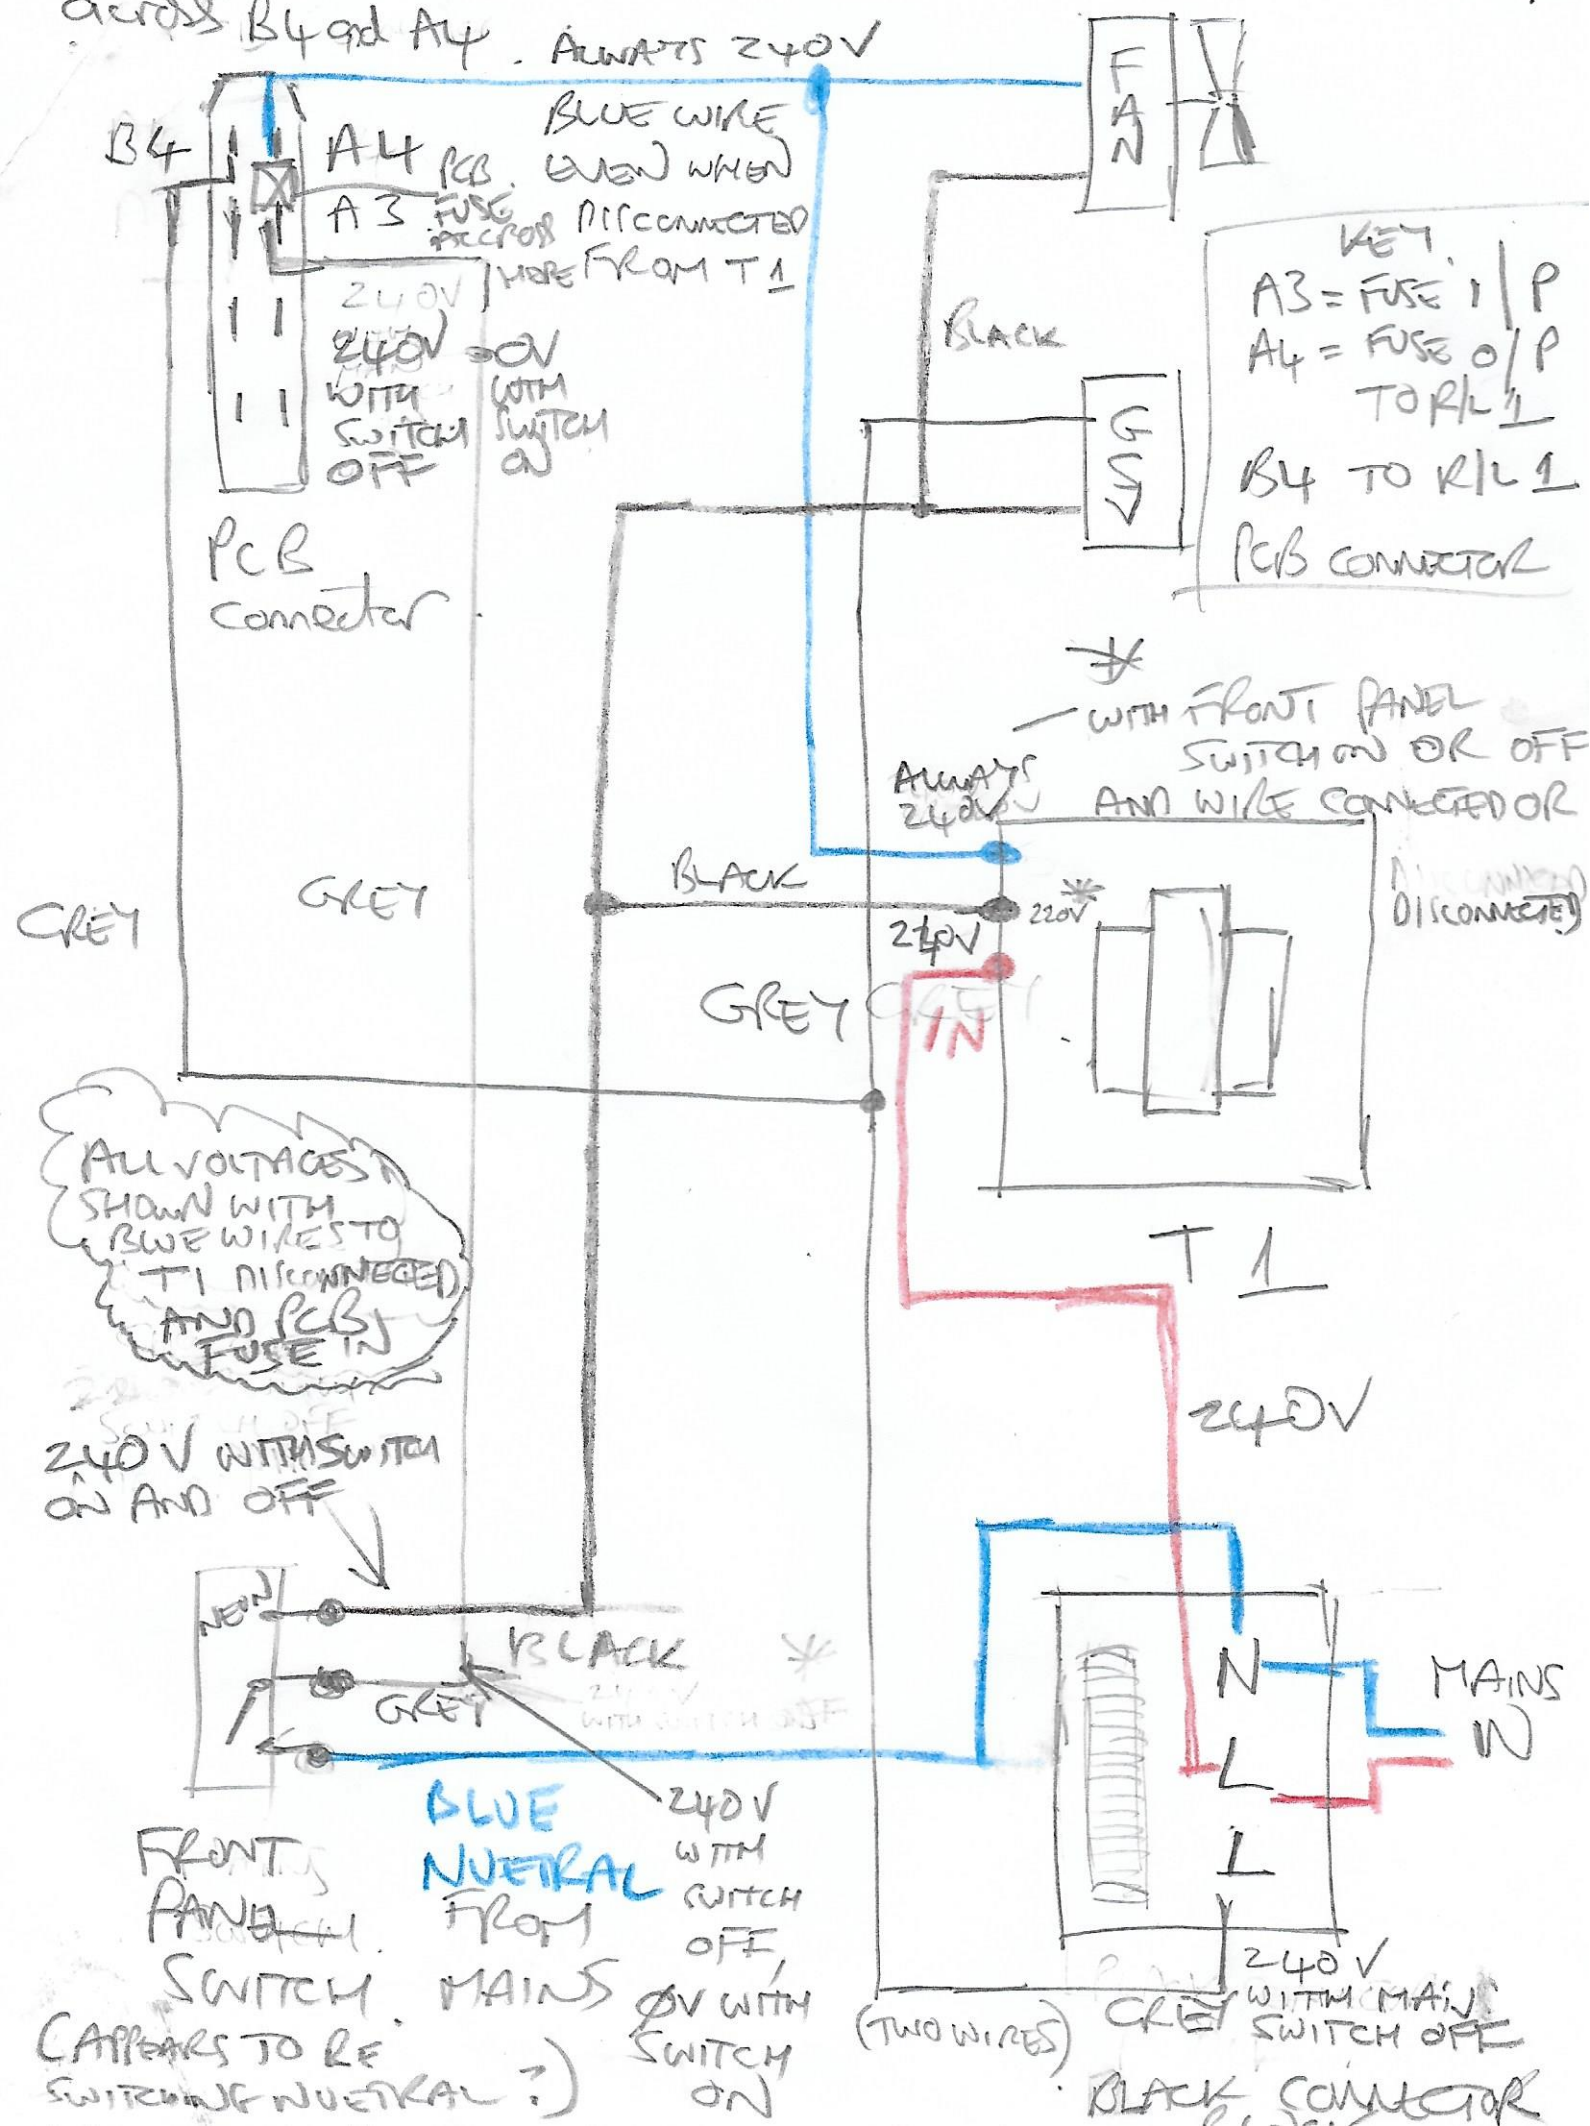 across B4 and A4. ALWAYS 240V
BLUE WIRE
EVEN WHEN
DISCONNECTED
FROM T1
B4
A4
A3
PCB
FUSE
ACCROSS
HERE
240V
240V
WITH
SWITCH
OFF
0V
WITH
SWITCH
ON
PCB
Connector
FAN
BLACK
GSV
KEY
A3 = FUSE I/P
A4 = FUSE O/P
TO R/L 1
B4 TO R/L 1
PCB CONNECTOR
* — WITH FRONT PANEL
SWITCH ON OR OFF
AND WIRE CONNECTED OR
DISCONNECTED
ALWAYS
240V
BLACK
220V *
240V
GREY
GREY
GREY GREY
IN
T 1
ALL VOLTAGES
SHOWN WITH
BLUE WIRES TO
T1 DISCONNECTED
AND PCB
FUSE IN
240V
240V WITH SWITCH
ON AND OFF
NEON
BLACK
GREY
*
BLUE
NUETRAL
FROM
MAINS
240V
WITH
SWITCH
OFF,
0V WITH
SWITCH
ON
FRONT
PANEL
SWITCH.
(APPEARS TO BE
SWITCHING NUETRAL?)
N
L
1
MAINS
IN
240V
WITH MAIN
SWITCH OFF
GREY
(TWO WIRES)
BLACK CONNECTOR